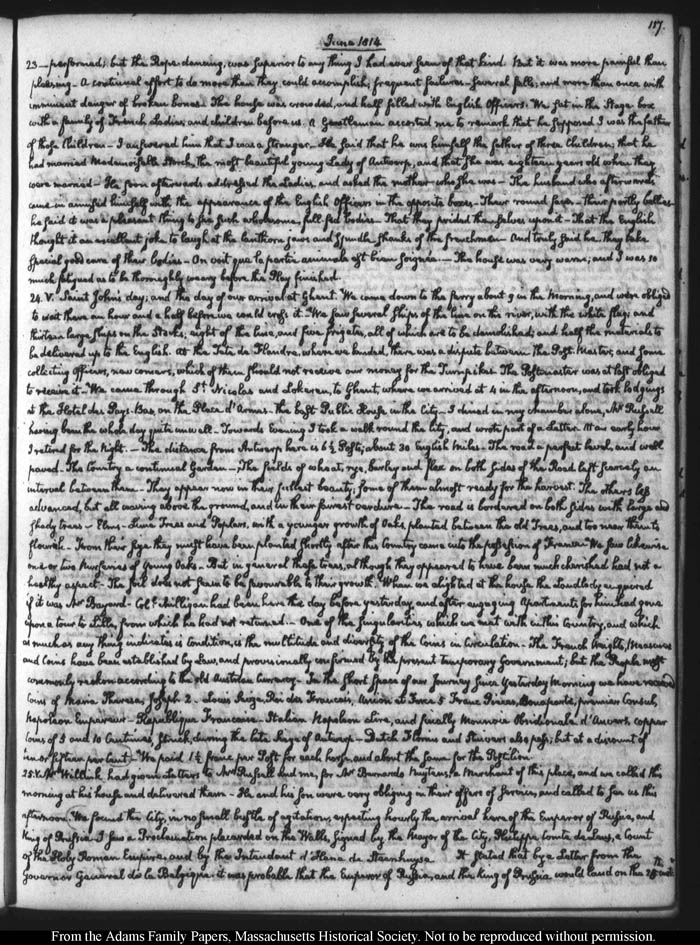 117.
June 1814
23 — performed; but the Rope dancing, was superior to any thing I had ever seen of that kind. But it was more painful than
pleasing — A continual effort to do more than they could accomplish; frequent failures — several falls; and more than once with
imminent danger of broken bones. The house was crowded, and half filled with English Officers. We sat in the Stage box
with a family of French Ladies, and children before us. A Gentleman accosted me to remark that he supposed I was the father
of those Children — I answered him that I was a stranger — He said that he was himself the father of three Children; that he
had married Mademoiselle the most beautiful young Lady of Antwerp, and that she was eighteen years old when they
were married — He soon afterwards addressed the Ladies, and asked the mother who she was — The husband who afterwards
came in amused himself with the appearance of the English Officers in the opposite boxes — Their round faces — their portly bellies
he said it was a pleasant thing to see such wholesome, full fed bodies — That they prided themselves upon it — That the English
thought it an excellent joke to laugh at the lanthorn jaws and spindle shanks of the frenchmen — And truly said he, they take
special good care of their bodies — On voit que la partie animale est bien soignée — The house was very warm; and I was so
much fatigued as to be thoroughly weary before the Play finished.
24. V. Saint John's day; and the day of our arrival at Ghent. We came down to the ferry about 9 in the Morning, and were obliged
to wait there an hour and a half before we could cross it. We saw several ships of the line on the river, with the white flag; and
thirteen large ships on the Stocks; eight of the line, and five frigates, all of which are to be demolished; and half the materials to
be delivered up to the English. At the Tete de Flandre, where we landed, there was a dispute between the Post-Master, and some
collecting officers, new comers, which of them should not receive our money for the Turnpike. The Postmaster was at last obliged
to receive it. We came through St. Nicolas and Lokeren, to Ghent, where we arrived at 4 in the afternoon, and took lodgings
at the Hotel des Pays-Bas, on the Place d'Armes — the best Public House in the City — I dined in my chamber alone, Mr Russell
having been the whole day quite unwell — Towards Evening I took a walk round the city, and wrote part of a Letter. At an early hour
I retired for the Night. — The distance from Antwerp here is 6½ Posts; about 30 English Miles — The road a perfect level, and well
paved. The Country a continual Garden — The fields of wheat, rye, barley and flax on both sides of the Road left scarcely an
interval between them — They appear now in their fullest beauty; some of them almost ready for the harvest. The others less
advanced, but all waving above the ground, and in their fairest verdure — The road is bordered on both sides with large and
shady trees — Elms — Lime Trees and Poplars, with a younger growth of Oaks, planted between the old Trees, and too near them to
flourish — From their size they must have been planted shortly after this Country came into the possession of France — We saw likewise
one or two Nurseries of young Oaks — But in general these trees, although they appeared to have been much cherished had not a
healthy aspect — The soil does not seem to be favourable to their growth. When we alighted at the house the Landlady enquired
if it was Mr Bayard — Coll. Milligan had been here the day before yesterday, and after engaging Apartments for himself gone
upon a tour to Lille, from which he had not returned. — One of the singularities which we met with in this Country, and which
as much as any thing indicates its condition, is the multitude and diversity of the Coins in circulation — The French Weights, Measures
and Coins have been established by Law, and provisionally confirmed by the present temporary Government; but the People most
commonly reckon according to the old Austrian Currency — In the short space of our Journey since Yesterday Morning we have received
Coins of Maria Theresa, Joseph 2. — Louis Seize, Roi des Francois, Union et Force 5 Franc Pieces, Bonaparte, premier Consul,
Napoleon Empereur — Republique Francaise — Italian Napoleon Lire, and finally Monnoie Obsidionale d'Anvers, copper
Coins of 5 and 10 Centimes, struck, during the late Siege of Antwerp — Dutch Florins and Stuivers also pass; but at a discount of
ten or fifteen per Cent — We paid 1½ franc per Post for each horse, and about the same for the Postilion.
25. V. Mr Willink had given Letters to Mr Russell and me, for Mr Bernardo Meytens, a Merchant of this place, and we called this
morning at his house and delivered them — He and his Son were very obliging in their offers of services, and called to see us this
afternoon. We found the City, in no small bustle of agitation, expecting hourly the arrival here of the Emperor of Russia, and
King of Prussia. I saw a Proclamation placarded on the Walls, signed by the Mayor of the City, Philippe Comte de Lens, a Count
of the Holy Roman Empire, and by the Intendant d'Hane de Steenhuyse. It stated that by a Letter from the
Governor General de la Belgique, it was probable that the Emperor of Russia, and the King of Prussia would land on the 25th inst.
From the Adams Family Papers, Massachusetts Historical Society. Not to be reproduced without permission.